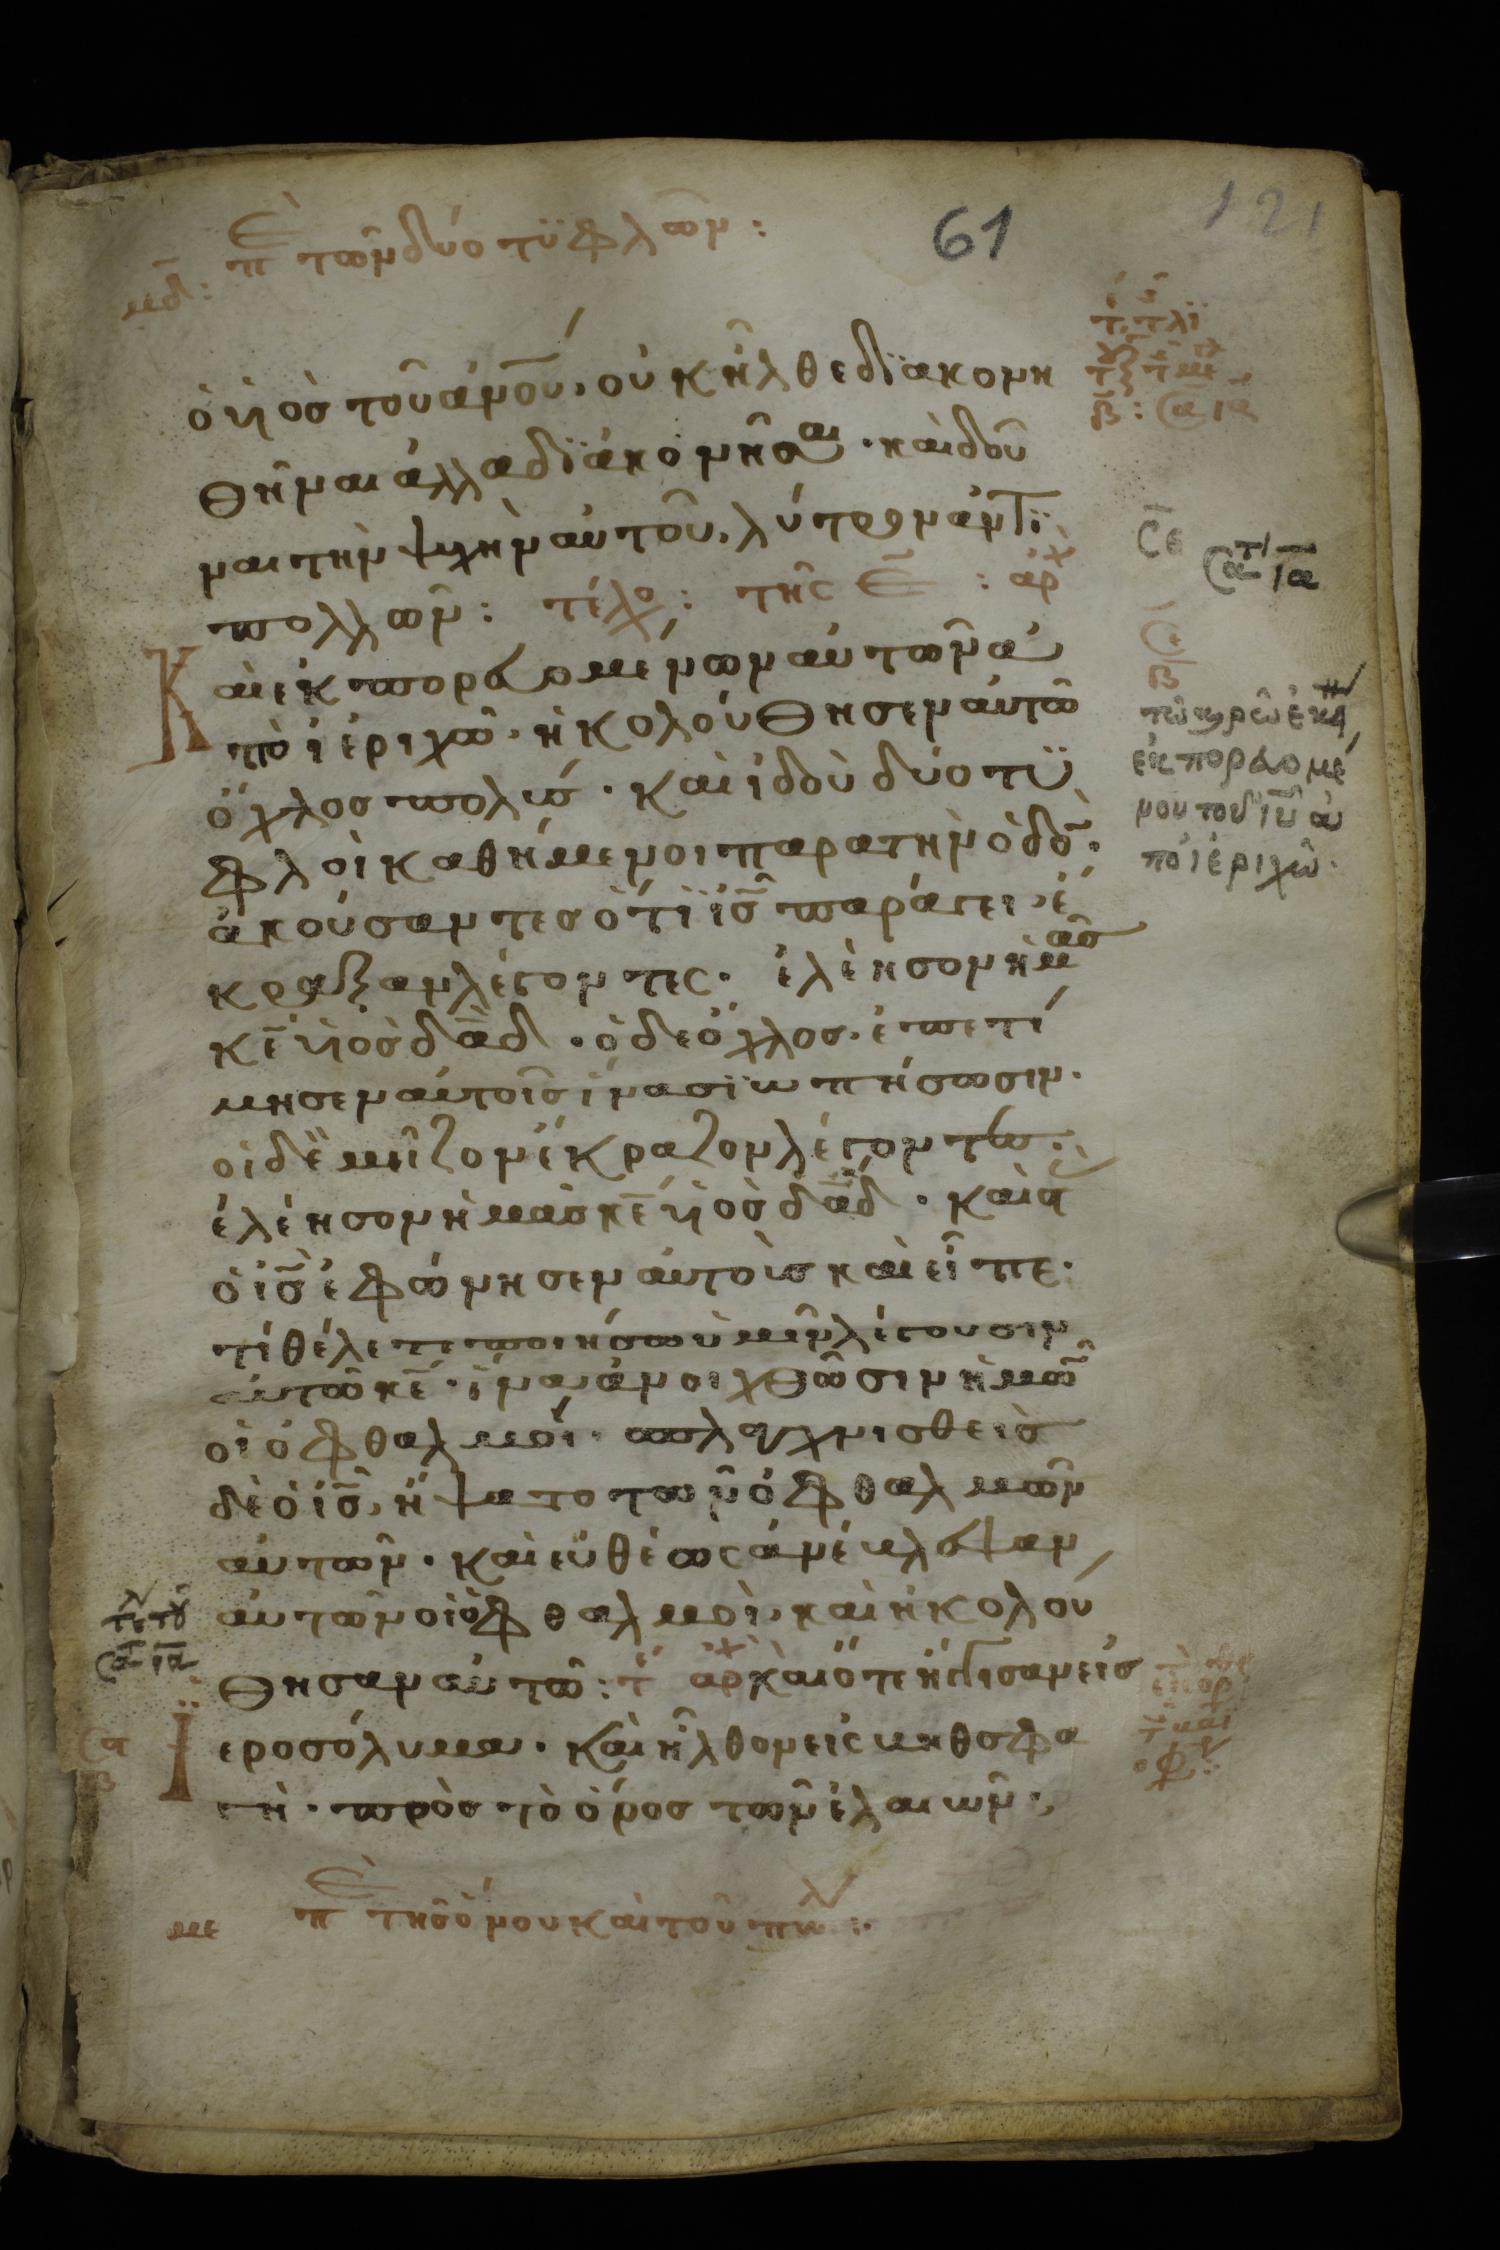 61
121
μδ: περὶ τῶν δύο τϋφλῶν:
ὁ ὑὸσ τοῦ ἀνου, οὐκ ἦλθε δϊακονη
θῆναι ἀλλα δϊακονῆσαι · καὶ δοῦ
ναι τὴν ψυχὴν αὐτοῦ, λύτρον ἀντΐ
πολλῶν: τέλο: τῆς : ἀρχ
Καὶ ἐκπορευομένων αὐτῶν ἀ
πὸ ἱεριχῶ · ἠκολούθησεν αὐτῶ
ὄχλοσ πολύσ · καὶ ἰδοὺ δύο τϋ
φλοὶ καθήμενοι παρα τὴν ὁδὸ ·
ἀκούσαντεσ ὅτι ϊσ παράγει, ἔ
κραξαν λέγοντες · ἐλέησον ἡμασ
κε ὑὸσ δαδ · ὁ δε ὄχλοσ · ἐπετί
μησεν αὐτοῖσ ἵνα σϊωπήσωσιν ·
οἱ δὲ μεῖζον ἔκραζον λέγοντεσ ·
ἐλέησον ἡμὰσ κε ὑὸσ δαδ · καὶ στὰσ
ὁ ισ ἐφώνησεν αὐτοὺσ καὶ εἶπε ·
τί θέλετε ποιήσω ὑμῖν λέγουσιν
αὐτῶ κε · ἵνα ἀνοιχθῶσιν ἡμῶ
οἱ ὀφθαλμοί · σπλαγχνισθεὶσ
δὲ ὁ ισ, ἥψατο τῶν ὀφθαλμῶν
αὐτῶν · καὶ εὐθέως ἀνέβλεψαν
αὐτῶν οἱ ὀφθαλμοὶ, καὶ ἠκολού
θησαν αὐτῶ: ἀρχ καὶ ὅτε ἤγγισαν εἰσ
Ϊεροσόλυμα · καὶ ἦλθον εἰς βηθσφα
γὴ · πρὸσ τὸ ὄροσ τῶν ἐλαιῶν ·
με περὶ τῆσ ὄνου καὶ τοῦ πώλ :·
τῶ καιρῶ ἐκεί
ἐκπορευομέ
νου τοῦ ιυ ἀ
πὸ ἱεριχῶ ·